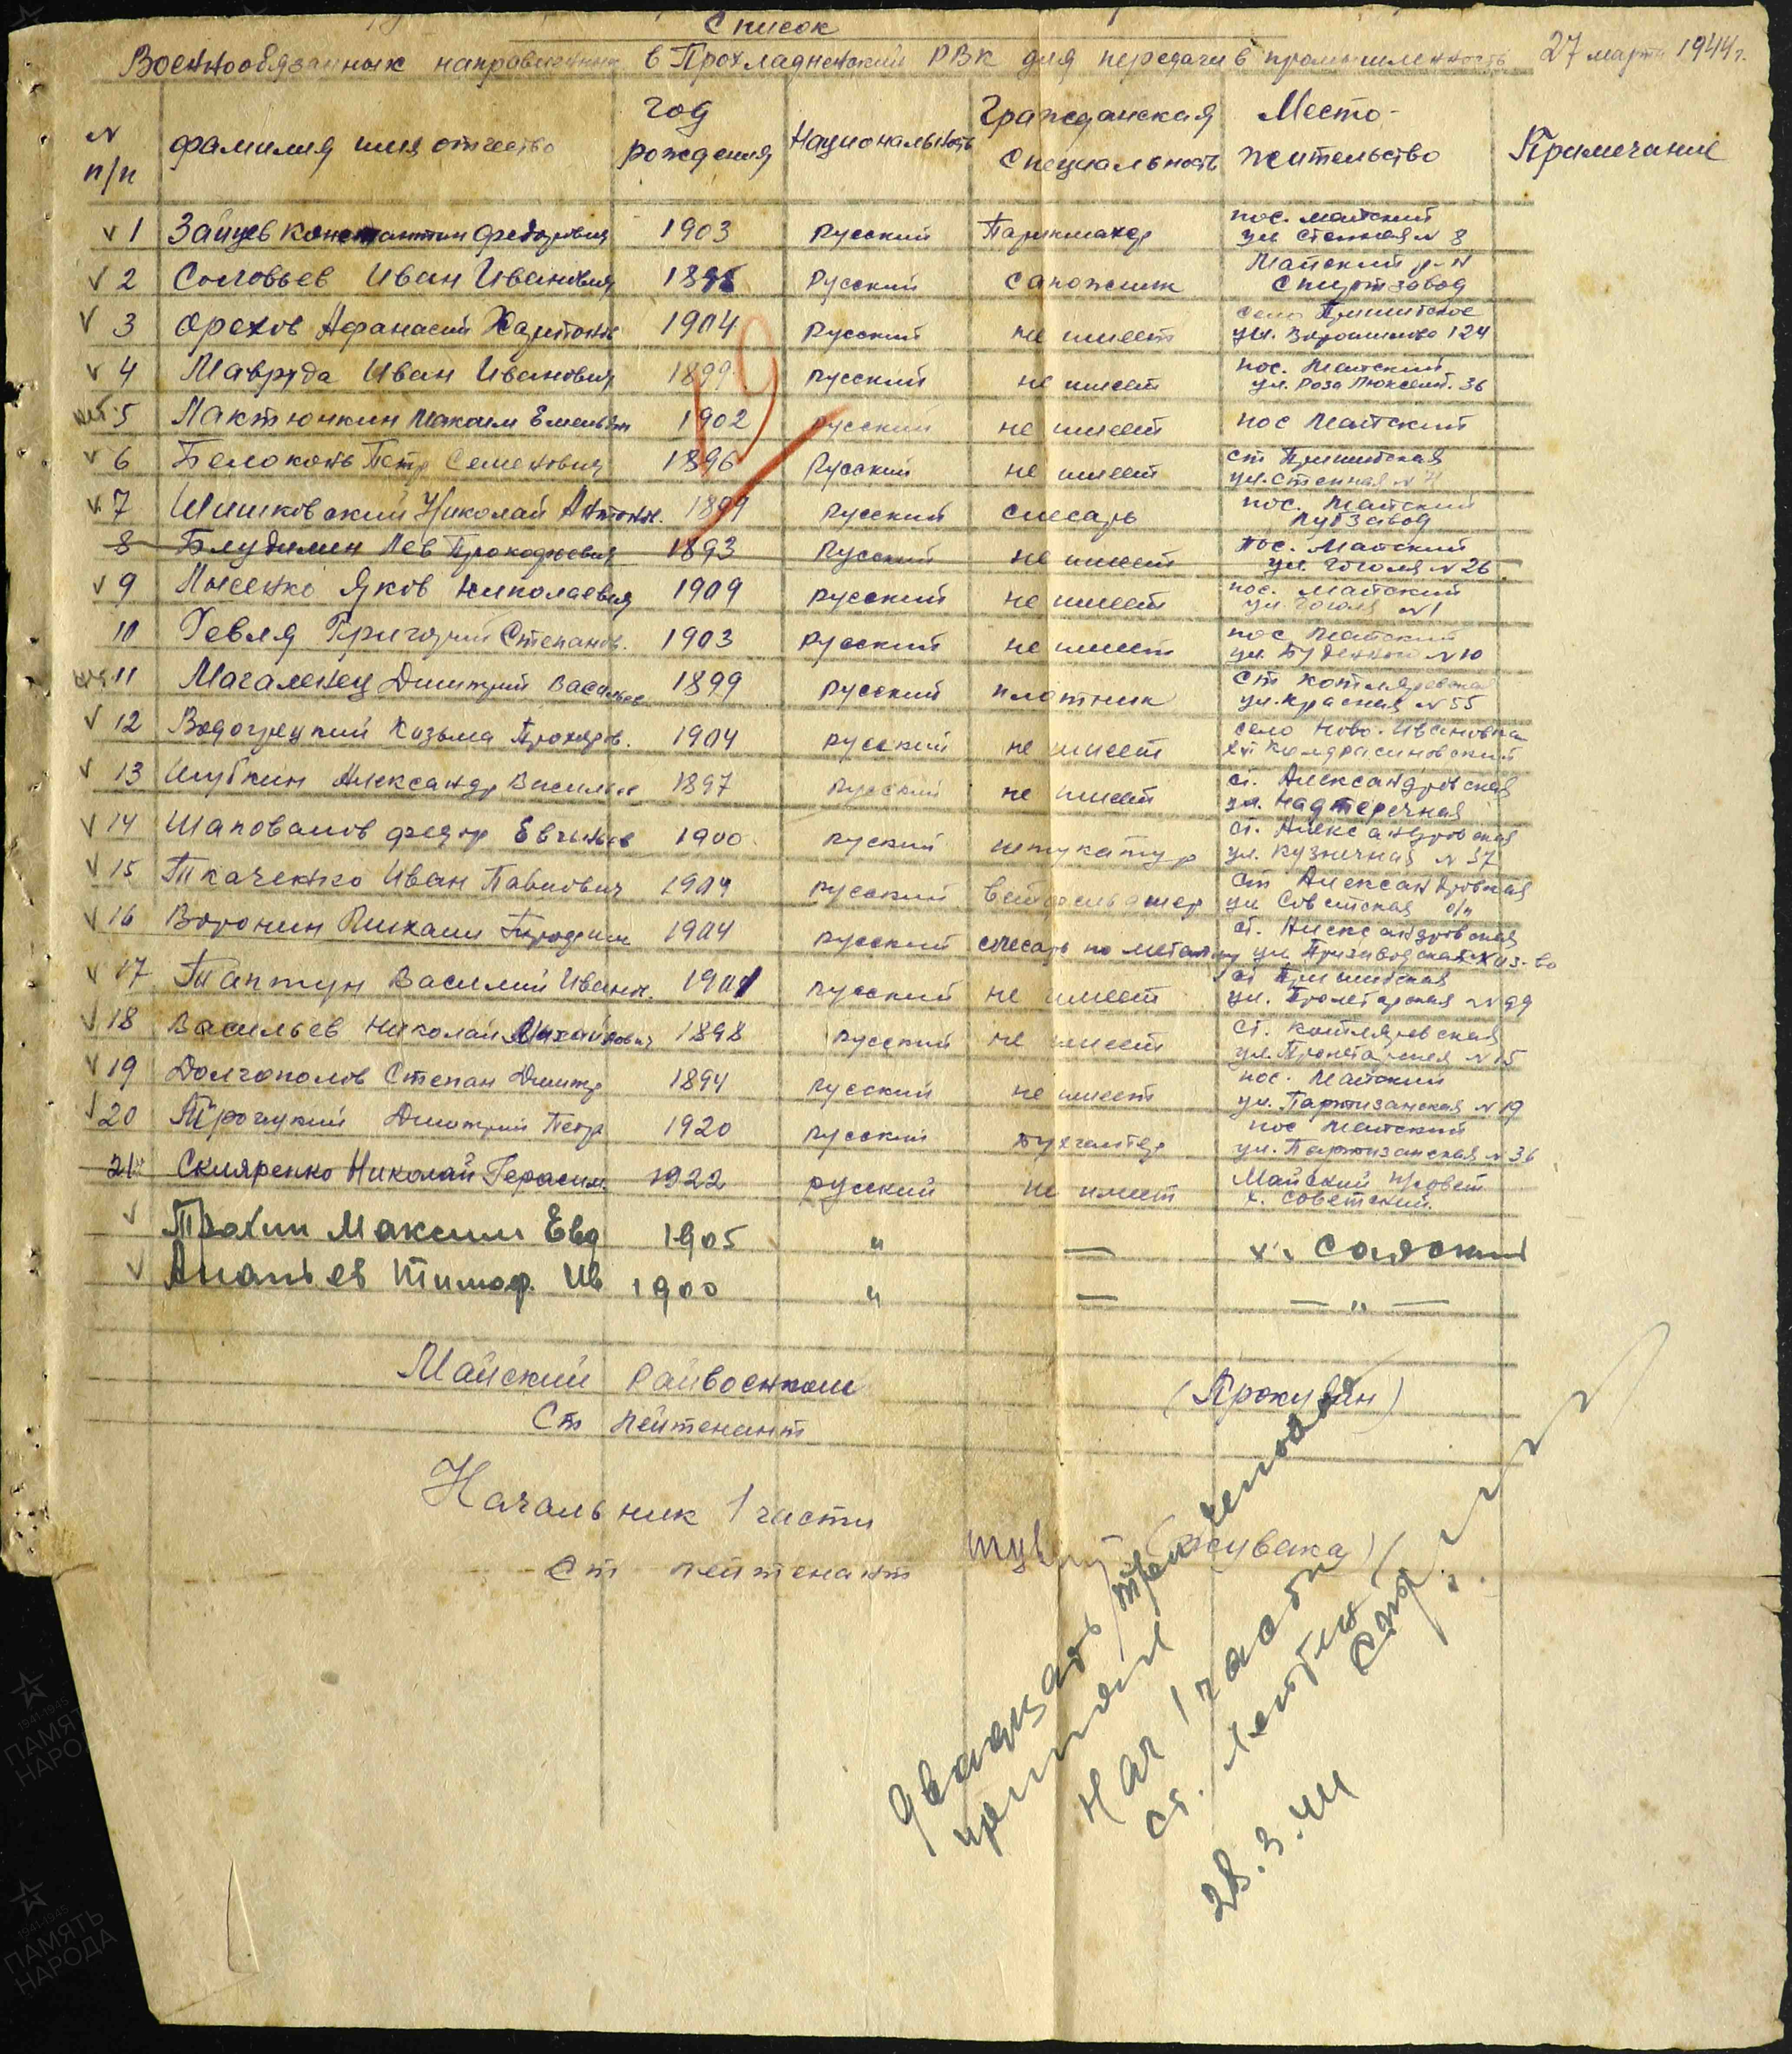 Список
Военнообязанных направленных в Прохладненский РВК для передачи в промышленность 27 марта 1944 г.
N п/п фамилия имя отчество Год рождения Национальность Гражданская Специальность Место-жительство Примечание
1 Зайцев Константин Федорович 1903 русский Парикмахер пос. Майский ул Степная N 8
2 Соловьев Иван Иванович русский сапожник Майский р-н Спиртзавод
3 Орехов Афанасий Харитонов 1904 русский не имеет село Пришибское ул. Ворошилова 124
4 Мавруда Иван Иванович 1899 русский не имеет пос. Майский ул. Роза Люксемб. 36
5 Лактюнкин Максим Емельян 1902 русский не имеет пос Майский
6 Белоконь Петр Семенович 1896 русский не имеет ст Пришибская ул. Степная N
7 Шишковский Николай Антонов. 1899 русский слесарь пос. Майский Лубзавод
8 Блудилин Лев Прокофьевич 1893 русский не имеет пос. Майский ул. Гоголя N 26
9 Лысенко Яков Николаевич 1909 русский не имеет пос. Майский ул Гоголя N 1
10 Гевля Григорий Степанов. 1903 русский не имеет пос. Майский ул. Буденного N 10
11 Магаленец Дмитрий Васильев 1899 русский плотник ст Котляревская ул. Красная N 55
12 Водогрецкий Козьма Прохоров. 1904 русский не имеет село Ново-Ивановка
13 Шубкин Александр Васильев 1897 русский не имеет ст. Александровская ул. Надтеречная
14 Шаповалов Федор Евгеньев 1900 руский штукатур ст. Александровская ул. Кузнечная N 37
15 Ткаченко Иван Павлович 1904 русский ветфельдшер ст Александровская ул Советская б/н
16 Воронин Михаил 1904 русский слесарь по металлу ст. Александровская ул.
17 Таптун Василий Иванов. 1901 русский не имеет ст Пришибская ул. Пролетарская N 99
18 Васильев Николай Михайлович 1898 русский не имеет ст. Котляревская ул. N 15
19 Долгополов Степан Дмитр 1894 русский не имеет пос. Майский ул. Партизанская N 19
20 Троцкий Дмитрий Петр 1920 русский бухгалтер пос Майский ул. Партизанская N 36
21 Скляренко Николай Герасим. 1922 русский не имеет Майский п/совет х. Советский.
Трохин Максим Евд 1905 " — х.
Ананьев Тимоф. Ив 1900 " — — " —
Майский Райвоенком
Ст Лейтенант (Прокудин)
Начальник 1 части
Ст лейтенант (Жувака)
двадцать три человека
принял
Нач 1 части
ст. лейтен
28.3.44
1941-1945
ПАМЯТЬ
НАРОДА
1941-1945
ПАМЯТЬ
НАРОДА